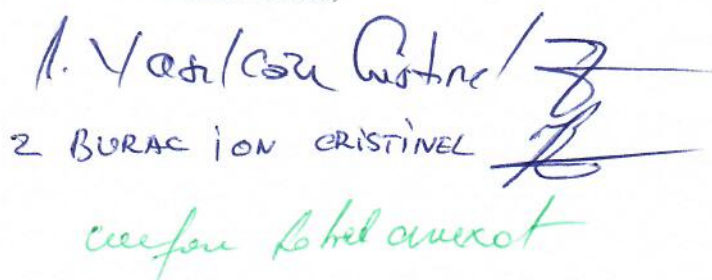 1. Vasilcau Cristinel
2 BURAC ION CRISTINEL
conform tabel anexat